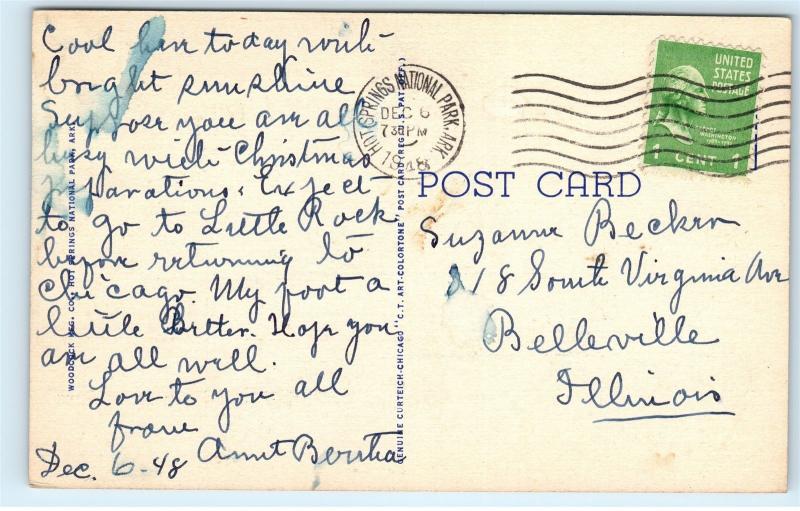 Cool here today with
bright sunshine
Suppose you are all
busy with Christmas
preparations. Expect
to go to Little Rock
before returning to
Chicago. My foot a
little Better. Hope you
are all well.
Love to you all
from
Aunt Bertha
Dec. 6-48
WOODCOCK MFG. CO., HOT SPRINGS NATIONAL PARK, ARK.
GENUINE CURTEICH-CHICAGO "C.T. ART-COLORTONE" POST CARD (REG. U.S. PAT. OFF.)
HOT SPRINGS NATIONAL PARK, ARK.
DEC 6
7 30 PM
1948
UNITED
STATES
POSTAGE
GEORGE
WASHINGTON
1 CENT 1
POST CARD
Suzanne Becker
218 South Virginia Ave
Belleville
Illinois